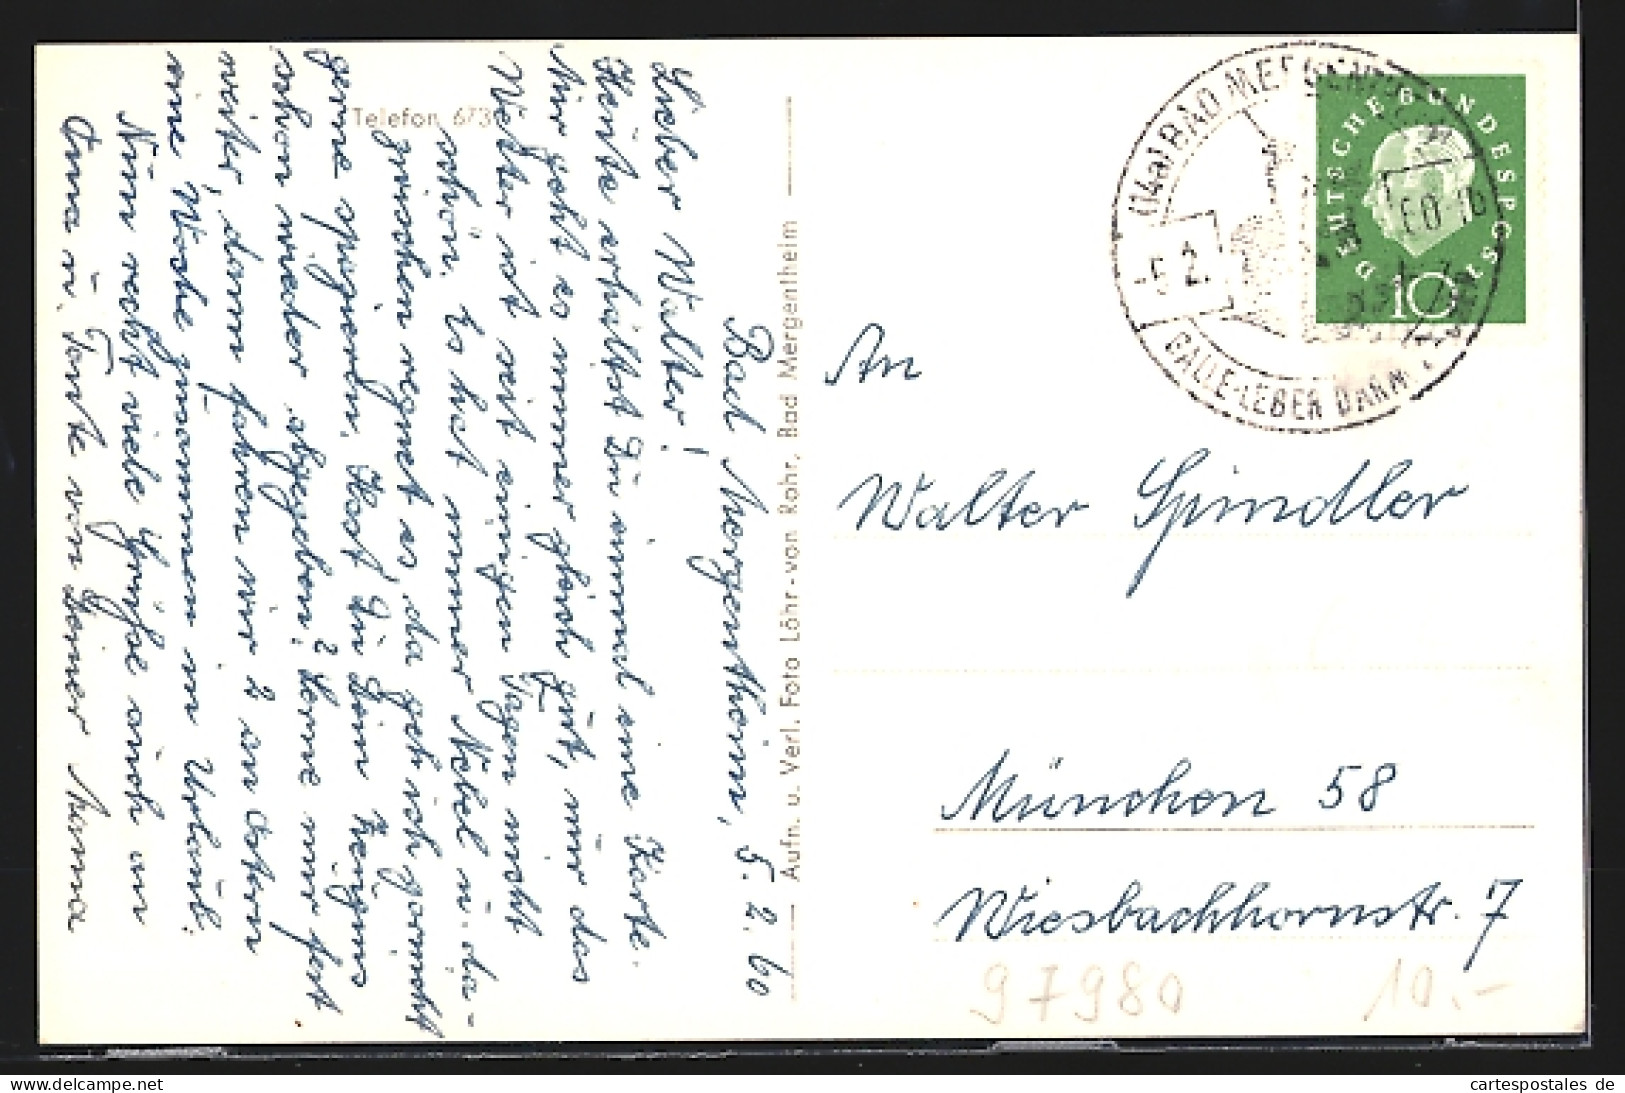 Telefon 673
Bad Mergentheim, 5. 2. 60
Lieber Walter!
Heute erhältst Du einmal eine Karte.
Mir geht es immer gleich gut, nur das
Wetter ist seit einigen Tagen nicht
schön. Es hat immer Nebel u. da-
zwischen regnet es, da geh ich garnicht
gerne spazieren. Hast Du Dein Zeugnis
schon wieder abgegeben? Lerne nur fest
weiter, dann fahren wir 2 an Ostern
eine Woche zusammen in Urlaub.
Nun recht viele Grüße auch an
Anna u. Tante von Deiner Mama
Aufn. u. Verl. Foto Löhr-von Rohr, Bad Mergentheim
BAD MERGENTHEIM
-5. 2. 60-16
GALLE-LEBER DARM
DEUTSCHE BUNDESPOST
10
An
Walter Spindler
München 58
Wiesbachhornstr. 7
97980
10.-
cartespostales de